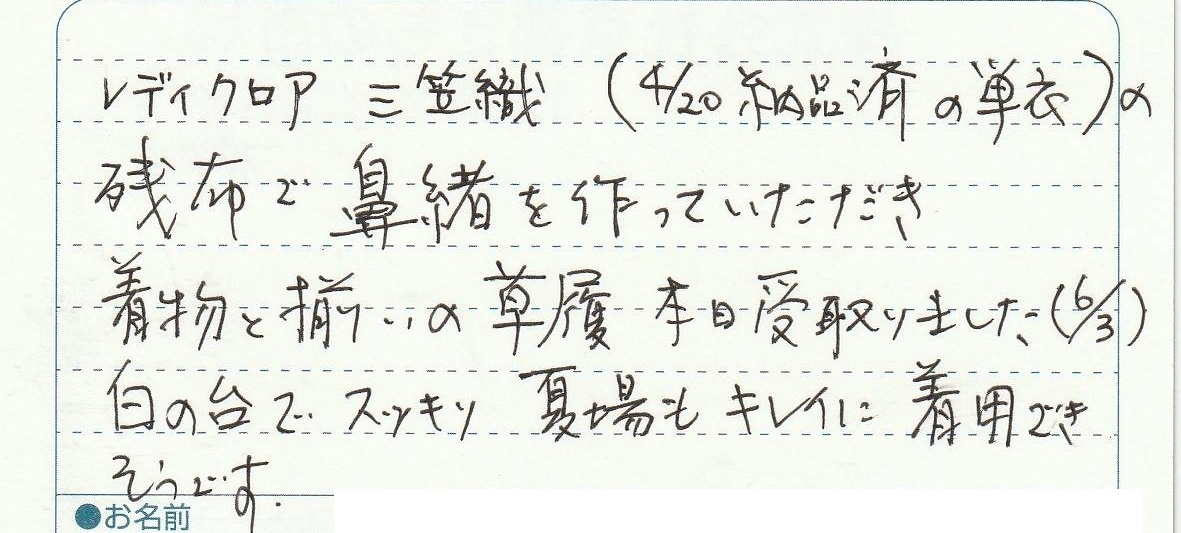 レディクロア 三笠織 (4/20 納品済の単衣)の
残布で 鼻緒を作っていただき
着物と揃いの 草履 本日受取りました(6/3)
白の台で スッキリ 夏場も キレイに 着用でき
そうです.
●お名前